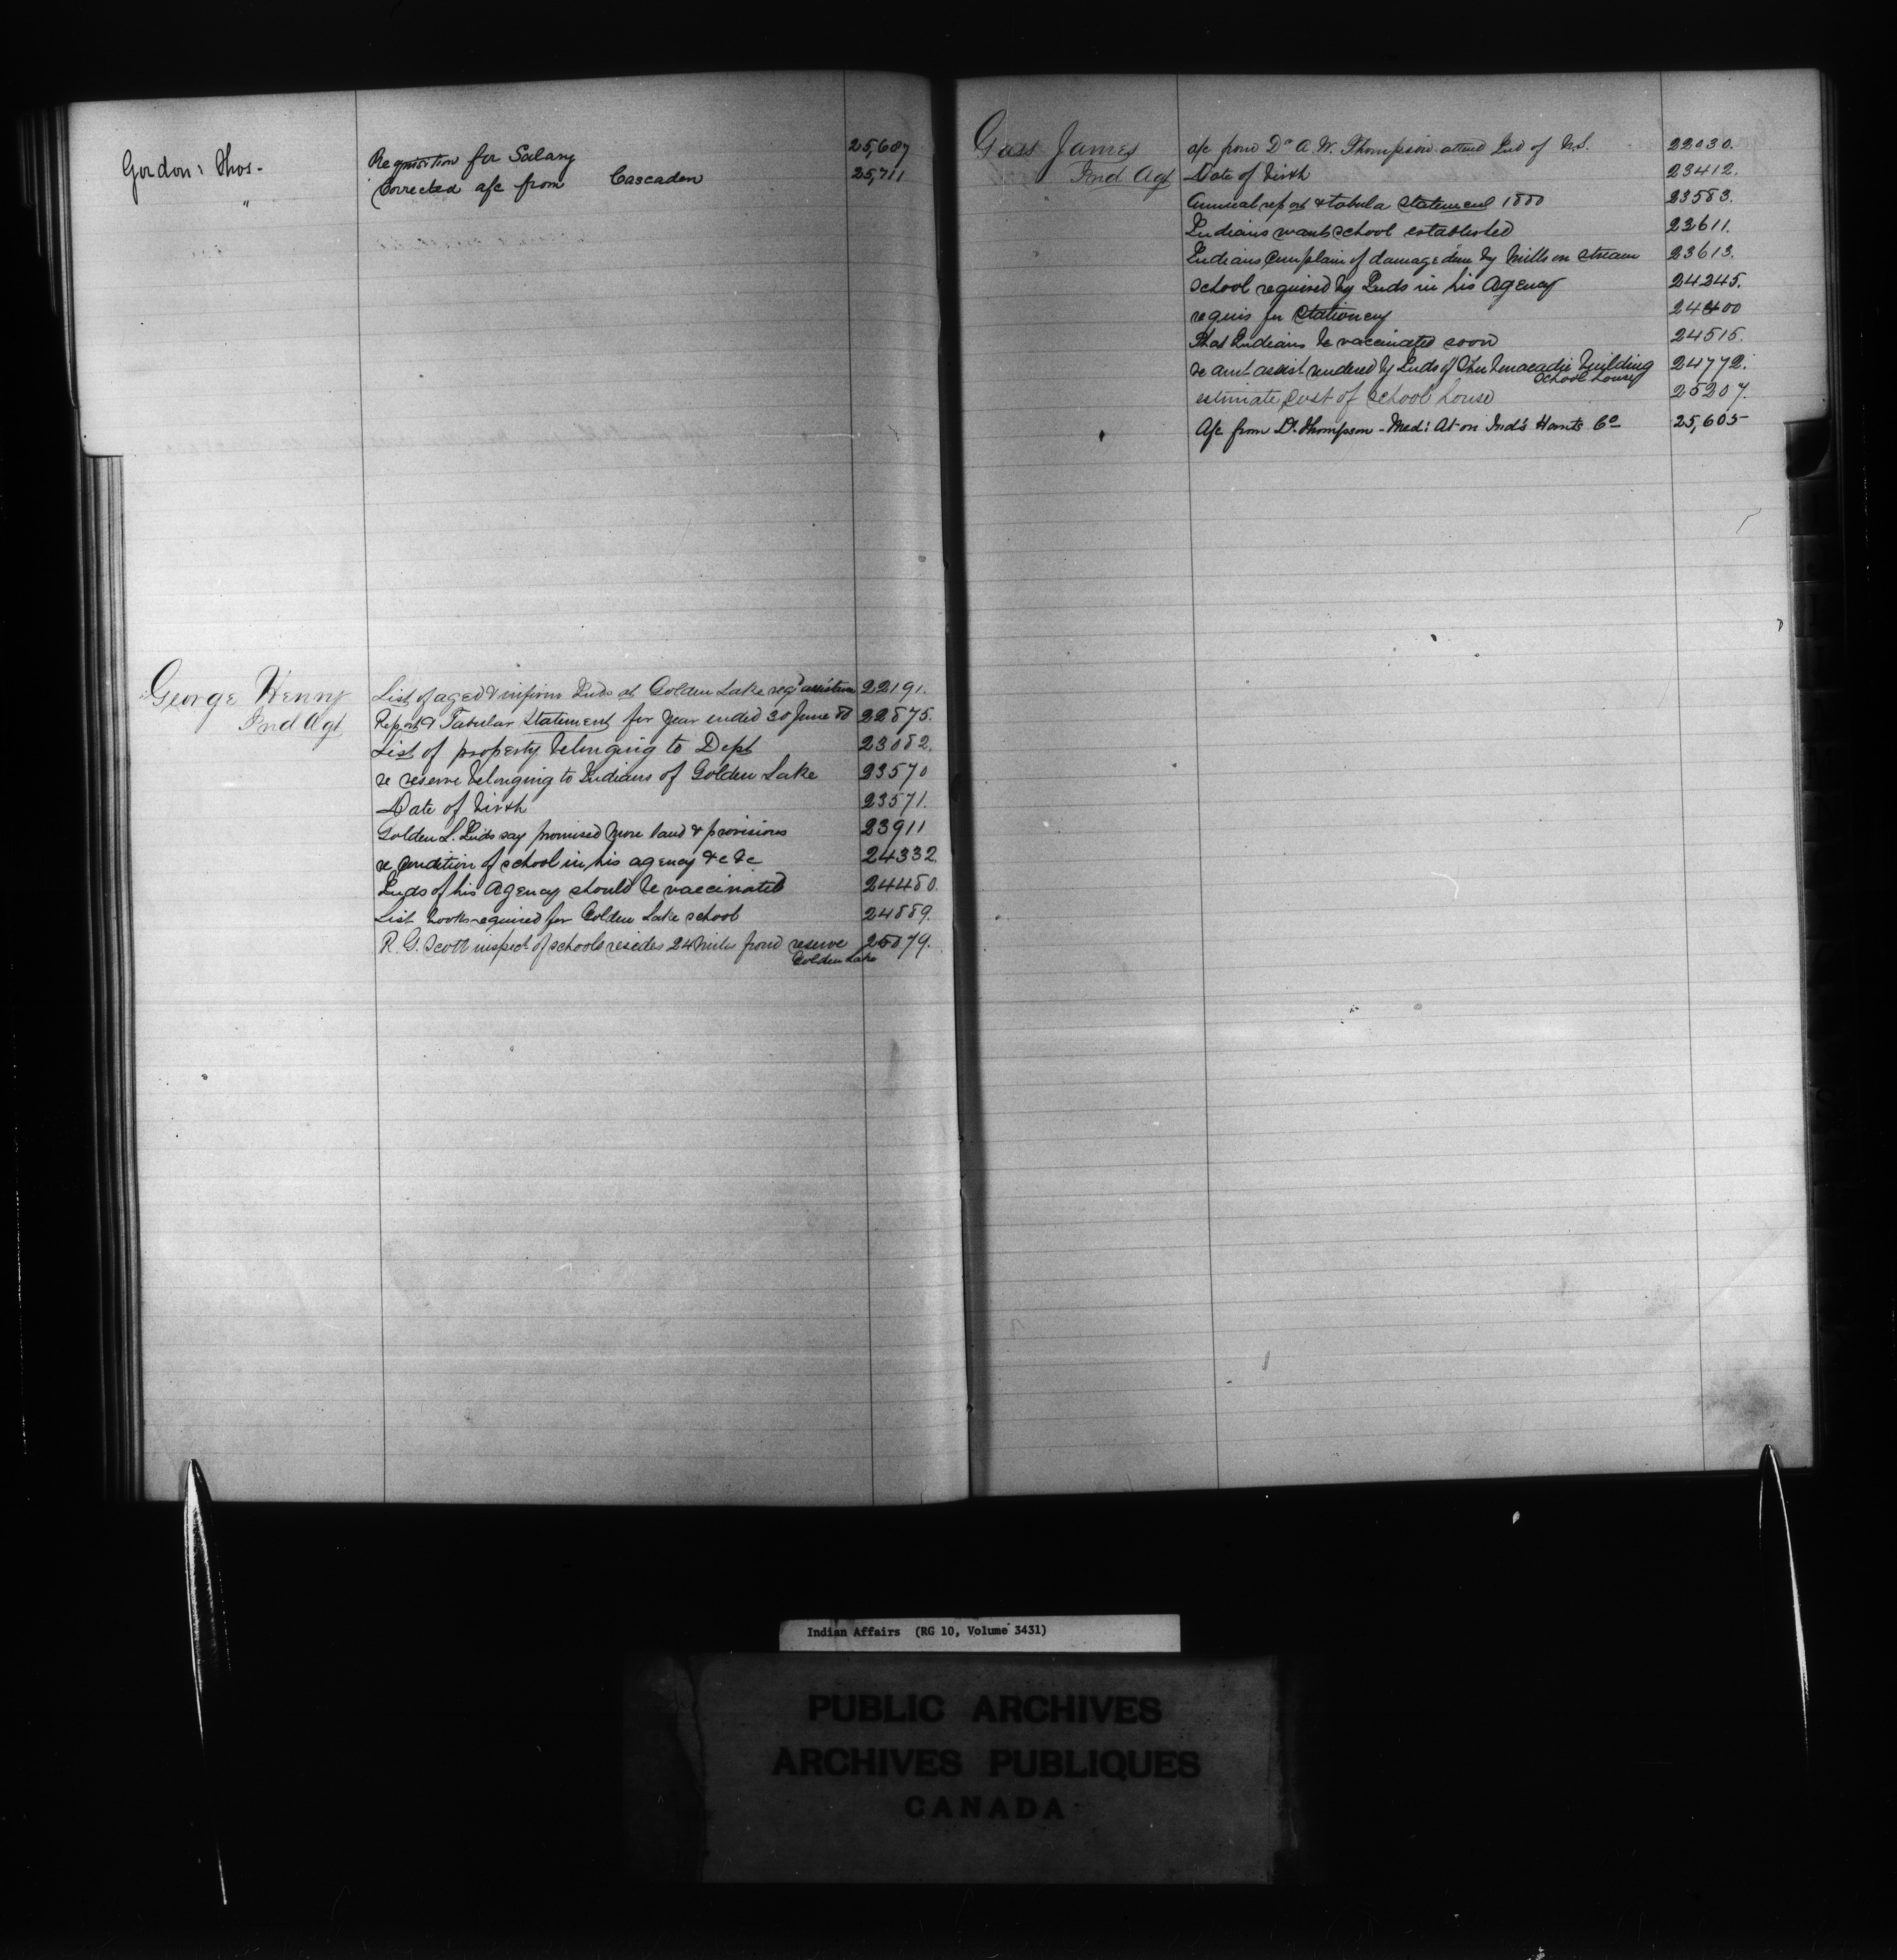 Gordon: Thos- Requisition for Salary 25,607
" Corrected a/c from Cascaden 25,711
George Henry List of aged & infirm Inds at Golden Lake reqd assistance 22191.
Ind Agt Report & Tabular Statement for year ended 30 June 80 22875.
List of property belonging to Dept 23082.
re reserve belonging to Indians of Golden Lake 23570
Date of birth 23571.
Golden L. Inds say promised more land & provisions 23911
re condition of school in his agency &c &c 24332.
Inds of his Agency should be vaccinated 24480.
List books required for Golden Lake school 24889.
R. G. Scott inspect. of schools resides 24 miles from reserve 25079.
Golden Lake
Gass James a/c from Dr A. W. Thompson attend Ind of N.S. 22030.
Ind Agt Date of birth 23412.
Annual report & tabula statement 1880 23583.
Indians want school established 23611.
Indians complain of damage done by mills on stream 23613.
School required by Inds in his Agency 24245.
requis for stationery 24400
That Indians be vaccinated soon 24515.
re amt assist rendered by Inds of Shubenacadie building 24772.
school house
estimate cost of school house 25207.
A/c from Dr. Thompson - Med: At on Ind's Hants Co 25,605
Indian Affairs (RG 10, Volume 3431)
PUBLIC ARCHIVES
ARCHIVES PUBLIQUES
CANADA